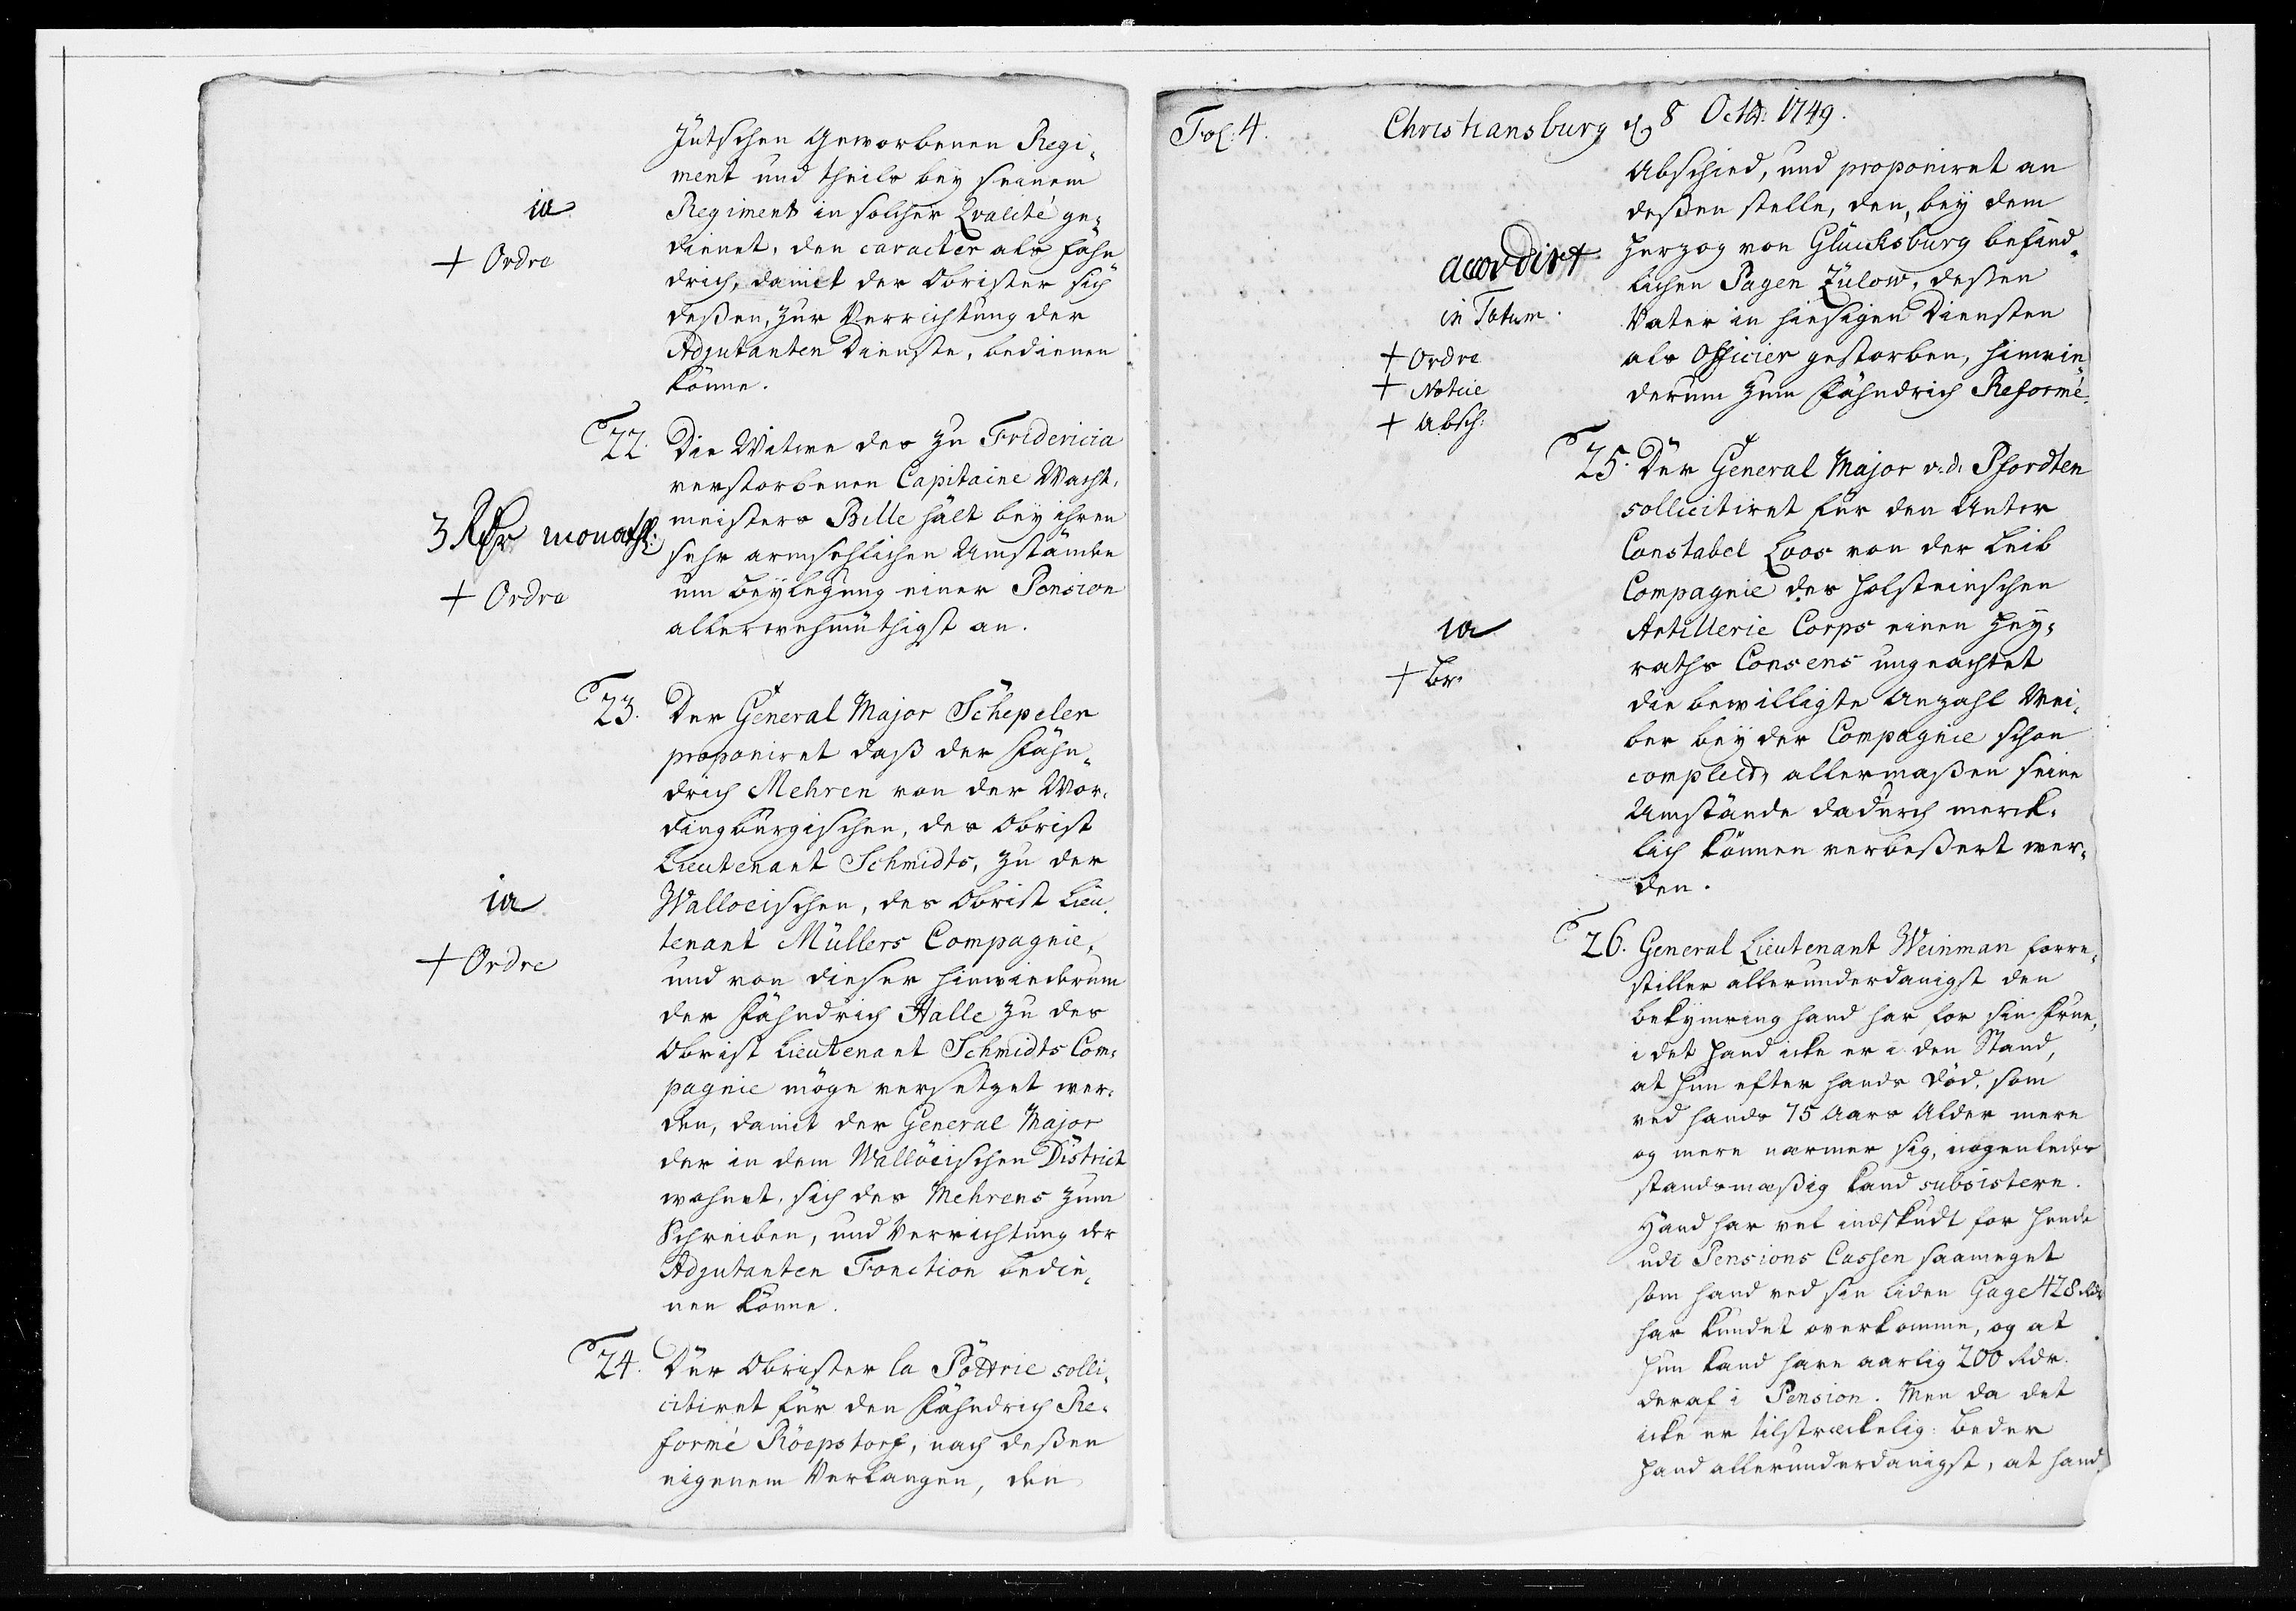 Jütschen Geworbenen Regi„
ment und theils bey seinem
ia
Regiment in solcher Qvalité ge„
dienet, den caracter als Fähn„
+ Ordre
drich, damit der Obrister sich
deßen, zur Verrichtung der
Adjutanten Dienste, bedienen
könne.
22. Die Witwe des zu Fridericia
verstorbenen Capitaine Wacht„
meisters Bille hält bey ihren
3 Rdr monathl:
sehr armsehlichen Umstände
um Beylegung einer Pension
+ Ordre
allerwehmüthigst an.
23. Der General Major Schepeler
proponiret daß der Fähn„
drich Mehren von der Wor„
dingburgischen, des Obrist
Lieutenant Schmidts, zu der
ia
Walloeischen, des Obrist Lieu„
tenant Müllers Compagnie,
+ Ordre
und von dieser hinwiederum
der Fähndrich Halle zu des
Obrist Lieutenant Schmidts Com„
pagnie möge versetzet wer„
den, damit der General Major
der in dem Wallöeischen District
wohnet, sich des Mehrens zum
Schreiben, und Verrichtung der
Adjutanten Fonction bedie„
nen könne.
24. Der Obrister la Pottrie solli„
citiret für den Fähndrich Re„
formé Röepstorf, nach deßen
eigenem Verlangen, den
Fol: 4. Christiansburg d 8 Octbr: 1749.
Abschied, und proponiret an
deßen stelle, den, bey dem
Herzog von Glucksburg befind„
accordirt
lichen Pagen Zülow, deßen
in Totum.
Vater in hiesigen Diensten
+ Ordre
als Officier gestorben, hinwie„
+ Notice
derum zum Fähndrich Reformé.
+ Absch:
25. Der General Major v. d. Pfordten
sollicitiret für den Unter
Constabel Loos von der Leib
Compagnie des Holsteinschen
ia
Artillerie Corps einen Hey„
raths Consens ungeachtet
+ Br.
die bewilligte Anzahl Wei„
ber bey der Compagnie schon
compleet, allermaßen seine
Umstände dadurch merck„
lich können verbeßert wer„
den.
26. General Lieutenant Weinman forre„
stiller allerunderdanigst den
bekymring hand har for sin Frue,
i det hand icke er i den Stand,
at hun efter hands Död, som
ved hands 75 Aars Alder mere
og mere nærmer sig, nogenledes
standsmæßig kand subsistere.
Hand har vel indskudt for hende
udi Pensions Cassen saameget
som hand ved sin liden Gage 428 Rdr
har kundet overkomme, og at
hun kand have aarlig 200 Rdr.
deraf i Pension. Men da det
icke er tilstreckelig: beder
hand allerunderdanigst, at hand